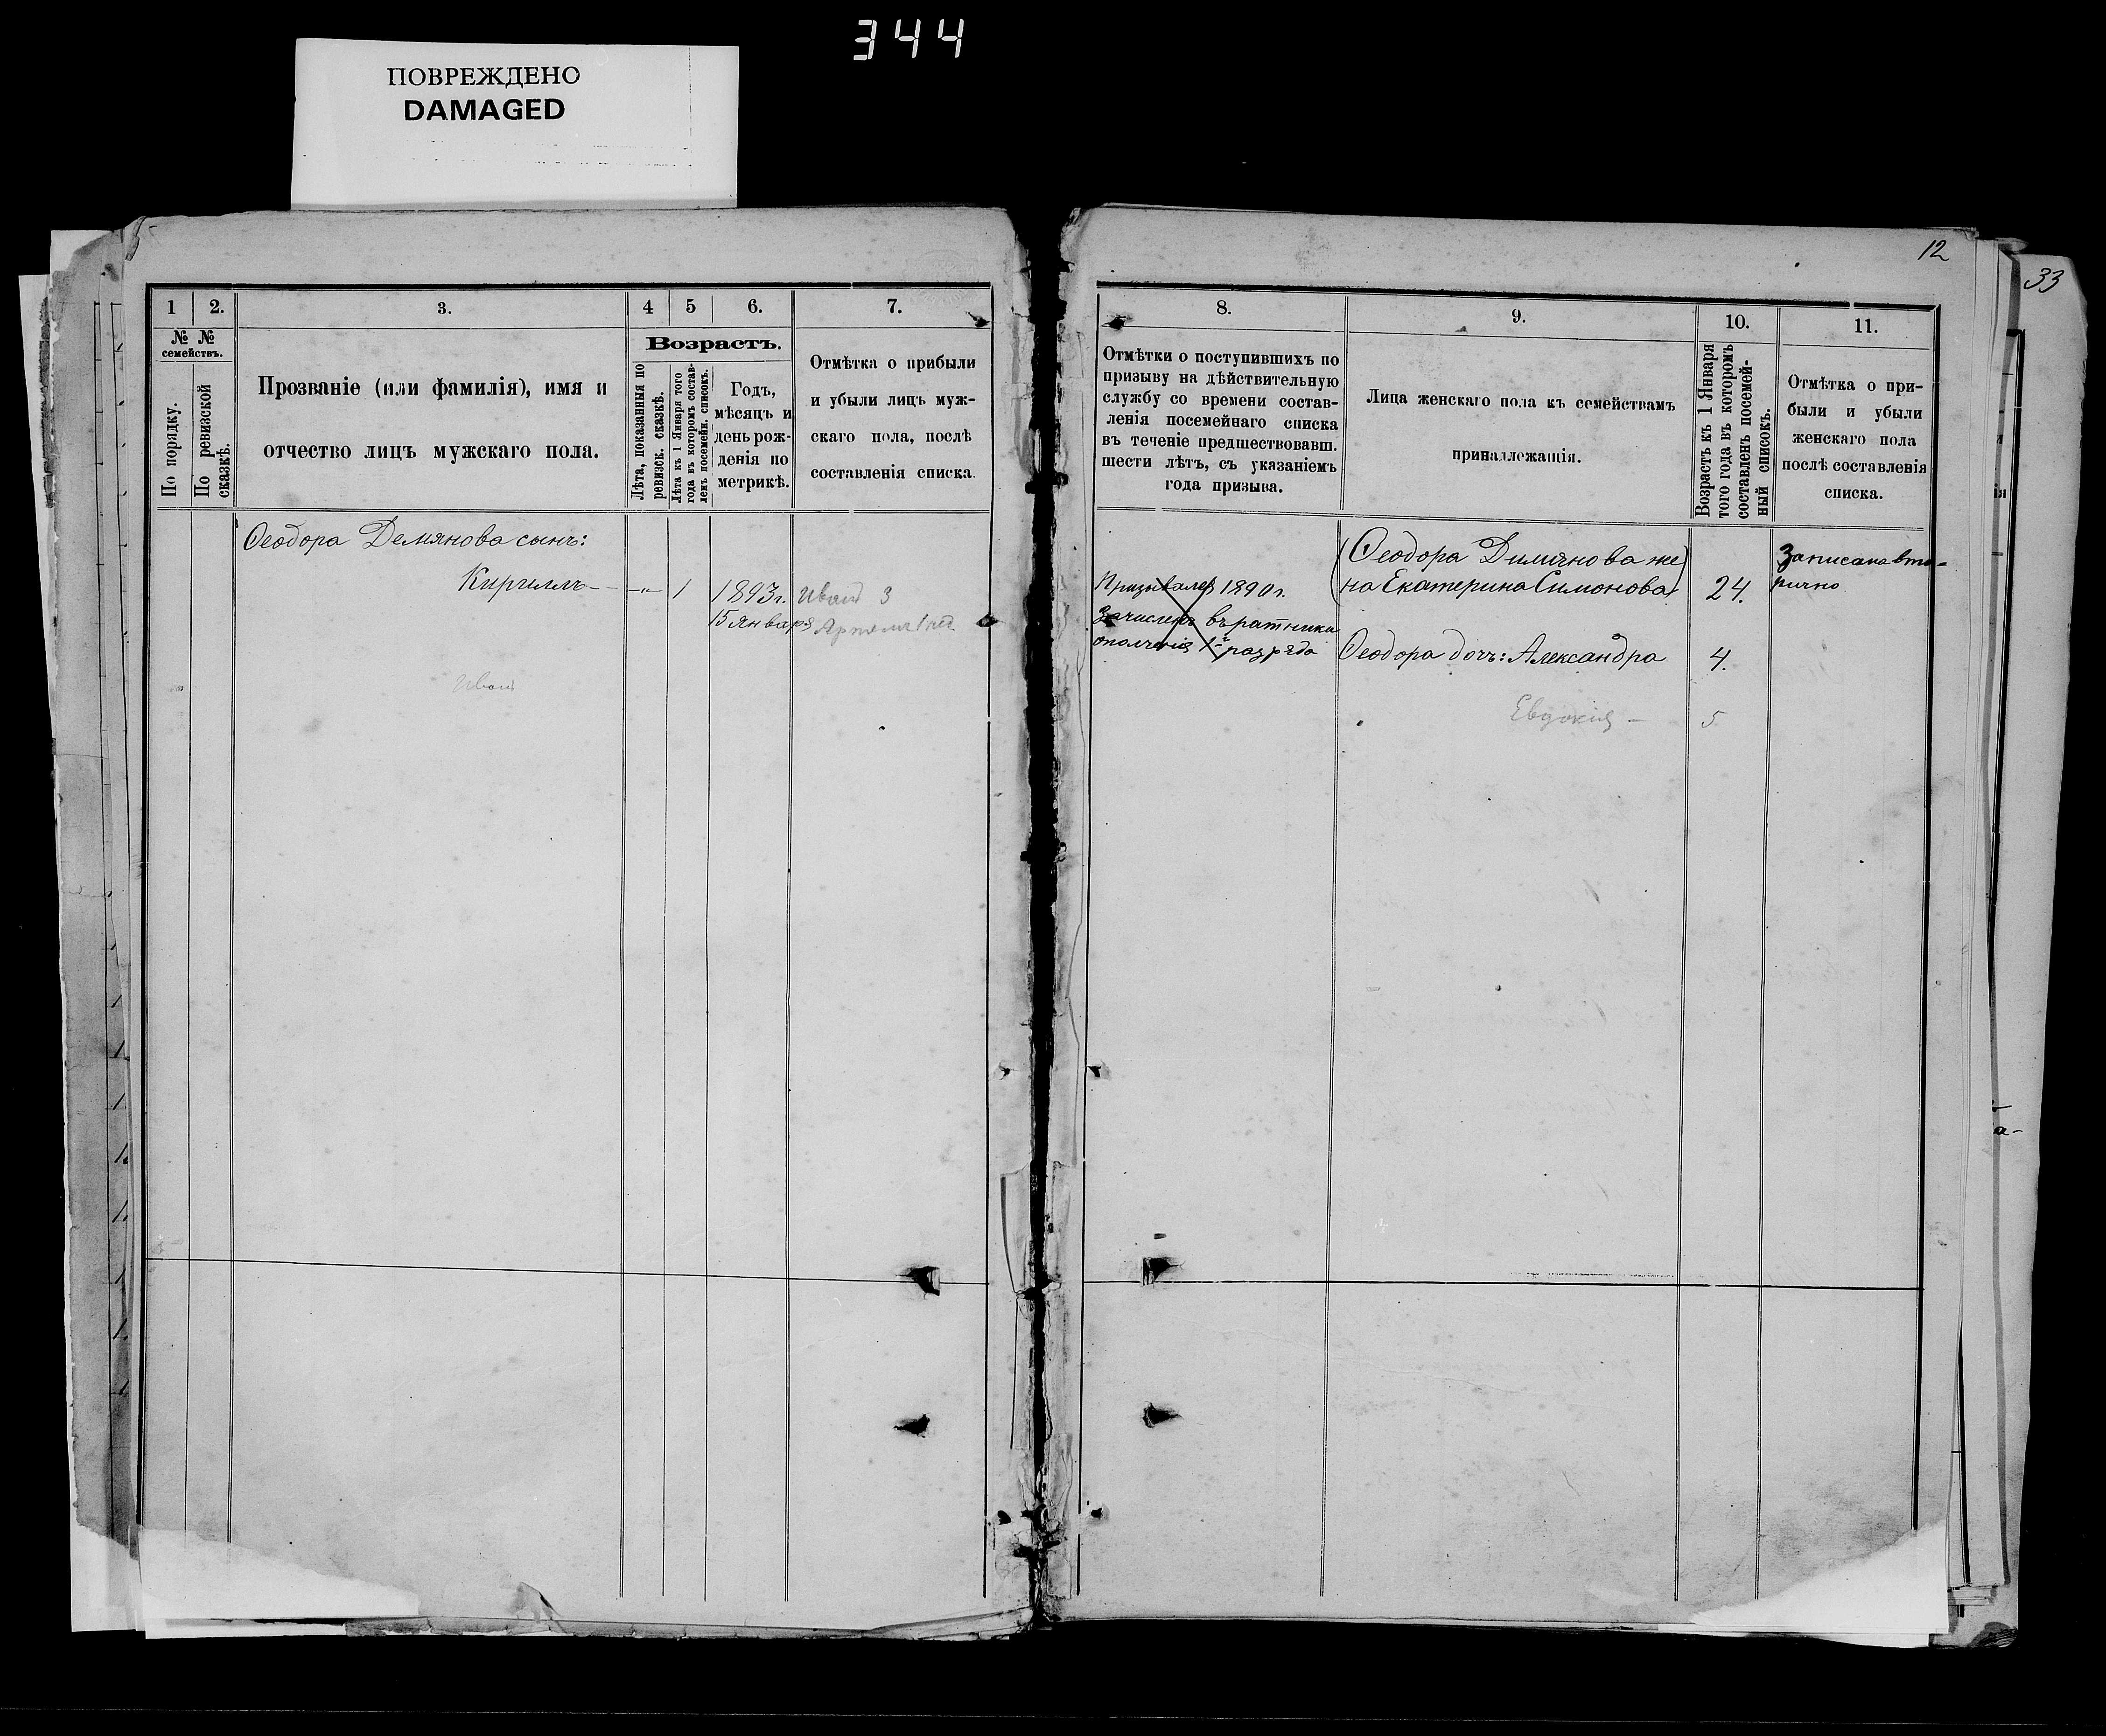 344
ПОВРЕЖДЕНО
DAMAGED
12
33
1
2.
3.
4
5
6.
7.
№ №
семействъ.
По порядку.
По ревизской
сказкѣ.
Прозваніе (или фамилія), имя и
отчество лицъ мужскаго пола.
Возрастъ.
Лѣта, показанныя по
ревизск. сказкѣ.
Лѣта къ 1 Января того
года въ которомъ состав-
ленъ посемейн. списокъ.
Годъ,
мѣсяцъ и
день рож-
денія по
метрикѣ.
Отмѣтка о прибыли
и убыли лицъ муж-
скаго пола, послѣ
составленія списка.
Ѳеодора Демянова сынъ:
Кириллъ — „ — 1 1893г. Иванъ 3
15 января Артемій 1 нед
Иванъ
8.
9.
10.
11.
Отмѣтки о поступившихъ по
призыву на дѣйствительную
службу со времени состав-
ленія посемейнаго списка
въ теченіе предшествовавш.
шести лѣтъ, съ указаніемъ
года призыва.
Лица женскаго пола къ семействамъ
принадлежащія.
Возрастъ къ 1 Января
того года въ которомъ
составленъ посемей-
ный списокъ.
Отмѣтка о при-
были и убыли
женскаго пола
послѣ составленія
списка.
Призывался 1890г.
Зачисленъ въ ратники
ополченія 1й разряда
(Ѳеодора Димянова же
на Екатерина Симонова) 24.
Записана вто-
рично
Ѳеодора дочь: Александра 4.
Евдокія — 5